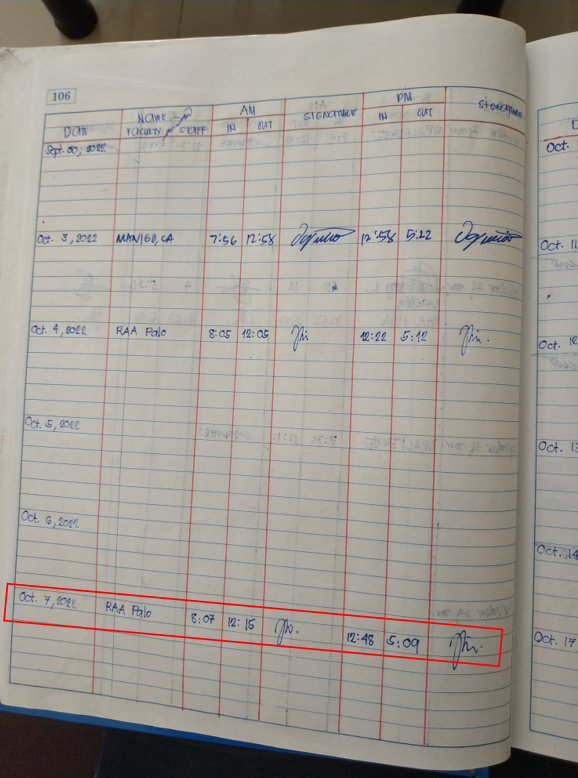 106
DATE NAME FACULTY STAFF AM IN OUT SIGNATURE PM IN OUT SIGNATURE
Sept. 30, 2022
Oct. 3, 2022 MANIGO, CA 7:56 12:58 12:58 5:22
Oct. 4, 2022 RAA Palo 8:05 12:05 12:22 5:12
Oct. 5, 2022
Oct. 6, 2022
Oct. 7, 2022 RAA Palo 8:07 12:15 12:48 5:09
Oct.
Oct. 11
Oct. 12
Oct. 13
Oct. 14
Oct. 17